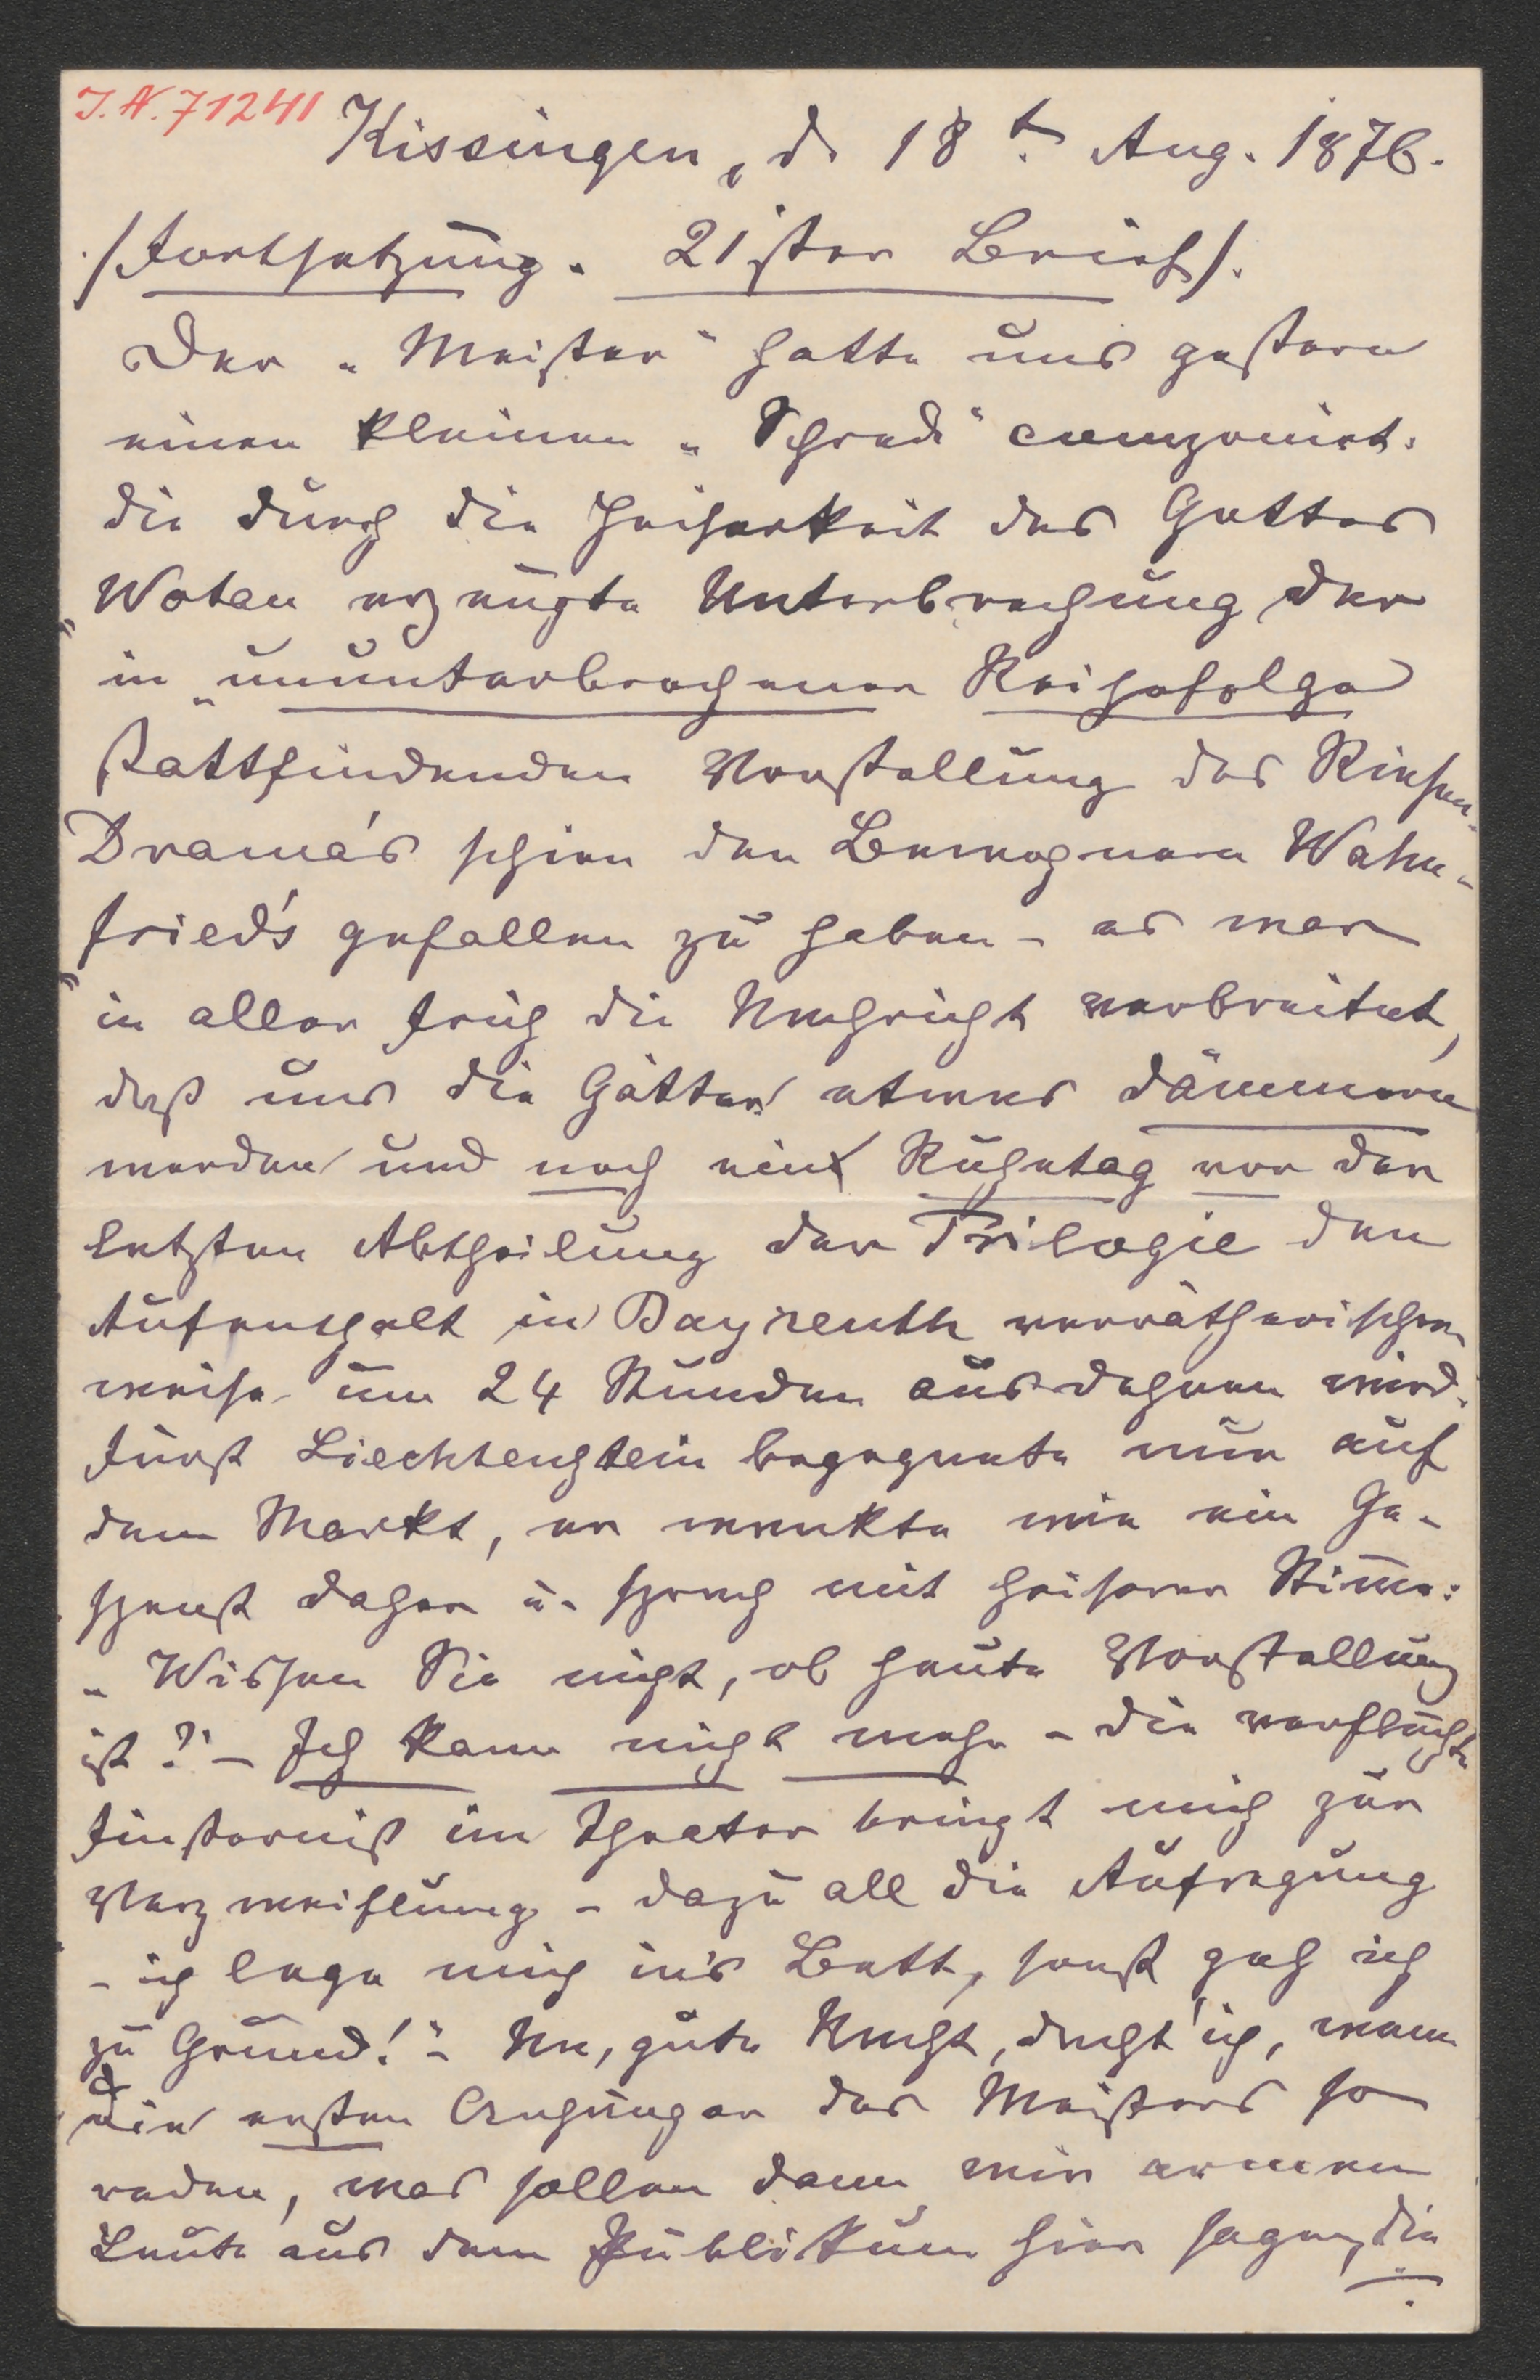 I. N. 71241
Kissingen, d. 18t. Aug. 1876.
/Fortsetzung. 21ster Brief/.
Der „Meister" hatte uns gestern
einen kleinen „Schreck" componirt:
die durch die Heiserkeit des Gottes
Wotan erzeugte Unterbrechung der
in „ununterbrochener Reihefolge"
stattfindenden Vorstellung des Riesen-
Drama's schien den Bewohnern Wahn-
fried's gefallen zu haben – es war
in aller Früh die Nachricht verbreitet,
daß uns die Götter etwas dämmern
werden und noch ein Ruhetag vor der
letzten Abtheilung der Trilogie den
Aufenthalt in Bayreuth verrätherischer
weise um 24 Stunden ausdehnen wird.
Fürst Liechtenstein begegnete mir auf
dem Markt, er wankte wie ein Ge-
spenst daher u. sprach mit heiserer Stimme:
„Wissen Sie nicht, ob heute Vorstellung
ist? – Ich kann nicht mehr – die verfluchte
Finsterniß im Theater bringt mich zur
Verzweiflung – dazu all die Aufregung
– ich lege mich in's Bett, sonst geh ich
zu Grund!" – Na, gute Nacht, dacht' ich, wenn
die ersten Anhänger des Meisters so
reden, was sollen dann wir armen
Leute aus dem Publikum hier sagen, die